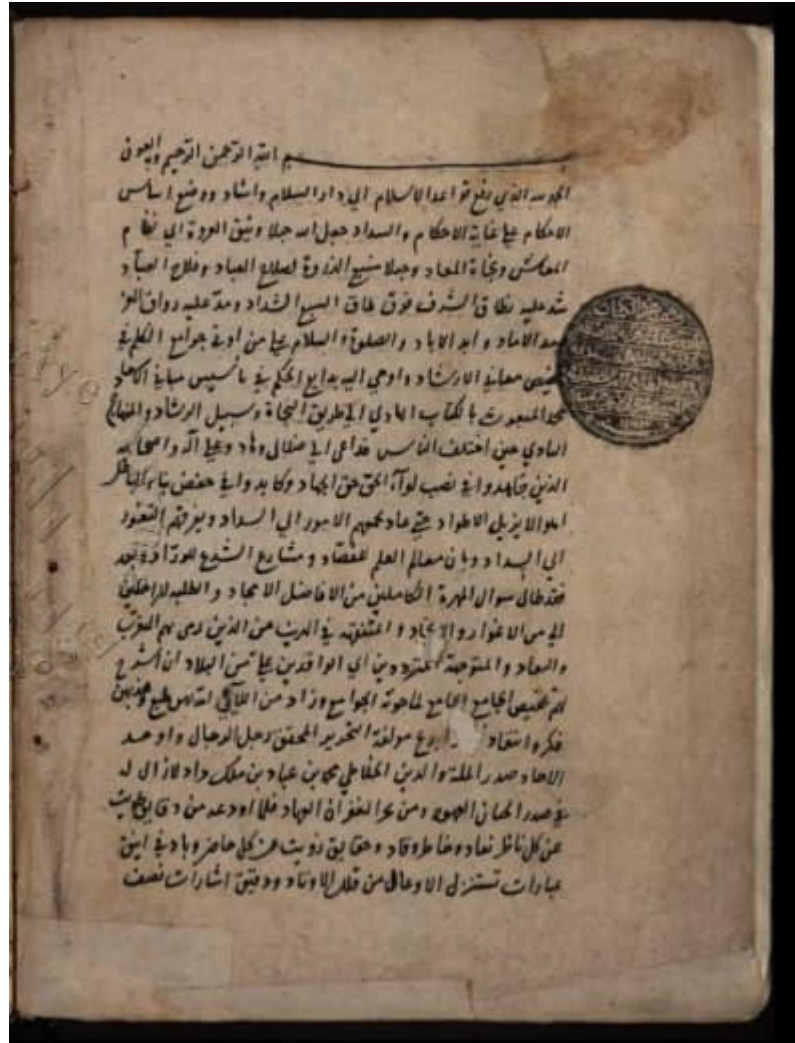 بسم الله الرحمن الرحيم وبه العون
الحمد لله الذي رفع قواعد الاسلام الي دار السلام واشاد ووضع اساس
الاحكام علي غاية الاحكام والسداد جعل حبلا وثيق العروة الي نظام
المعاش ونجاة المعاد وجبلا منيع الذروة لصلاح العباد وفلاح العباد
شد عليه نطاق الشرف فوق طاق السبع الشداد ومد عليه رواق العز
الاماد وابد الاباد والصلوة والسلام علي من اوتي جوامع الكلم في
تلخيص معاني الارشاد واوحي اليه بدايع الحكم في تأسيس مباني
محمد المبعوث بالكتاب الهادي الي طريق النجاة وسبيل الرشاد والمنهاج
البادي حين اختلف الناس فداعي الي ضلال وهاد وعلي آله واصحابه
الذين جاهدوا في نصب لوآء الحق حق الجهاد وكابدوا في خفض بناء الباطل
اهوالا يزيل الاطواد حتي عاد بهم الامور الي السداد
الي السداد وبان معالم العلم للقصاد ومشارع الشرع للوراد وبعد
فقد طال سوال المهرة الكاملين من الافاضل الامجاد والطلبة
الي من الاغوار والانجاد و المتفقهة في الدين من الذين رمي بهم النوي
والبعاد والمتوجهة المترددين اي الوافدين علي من البلاد ان اشرح
لهم تلخيص الجامع الجامع لما حوته الجوامع وزاد من اللآلي
فكر وانتقاد مولفه النحرير المحقق رجل الرجال واوحد
الاحاد صدر الملة والدين الخلاطي محمد بن عباد بن ملك داد لازال له
في صدر الجنان المهاد ومن بحر الغفران العهاد فلما اودعه من دقايق
عن كل ناظر نقاد وخاطر وقاد وحقايق زويت عن كل حاضر وباد في انيق
عبارات تستنزل الاوعال من قلال الاوتاد ودقيق اشارات